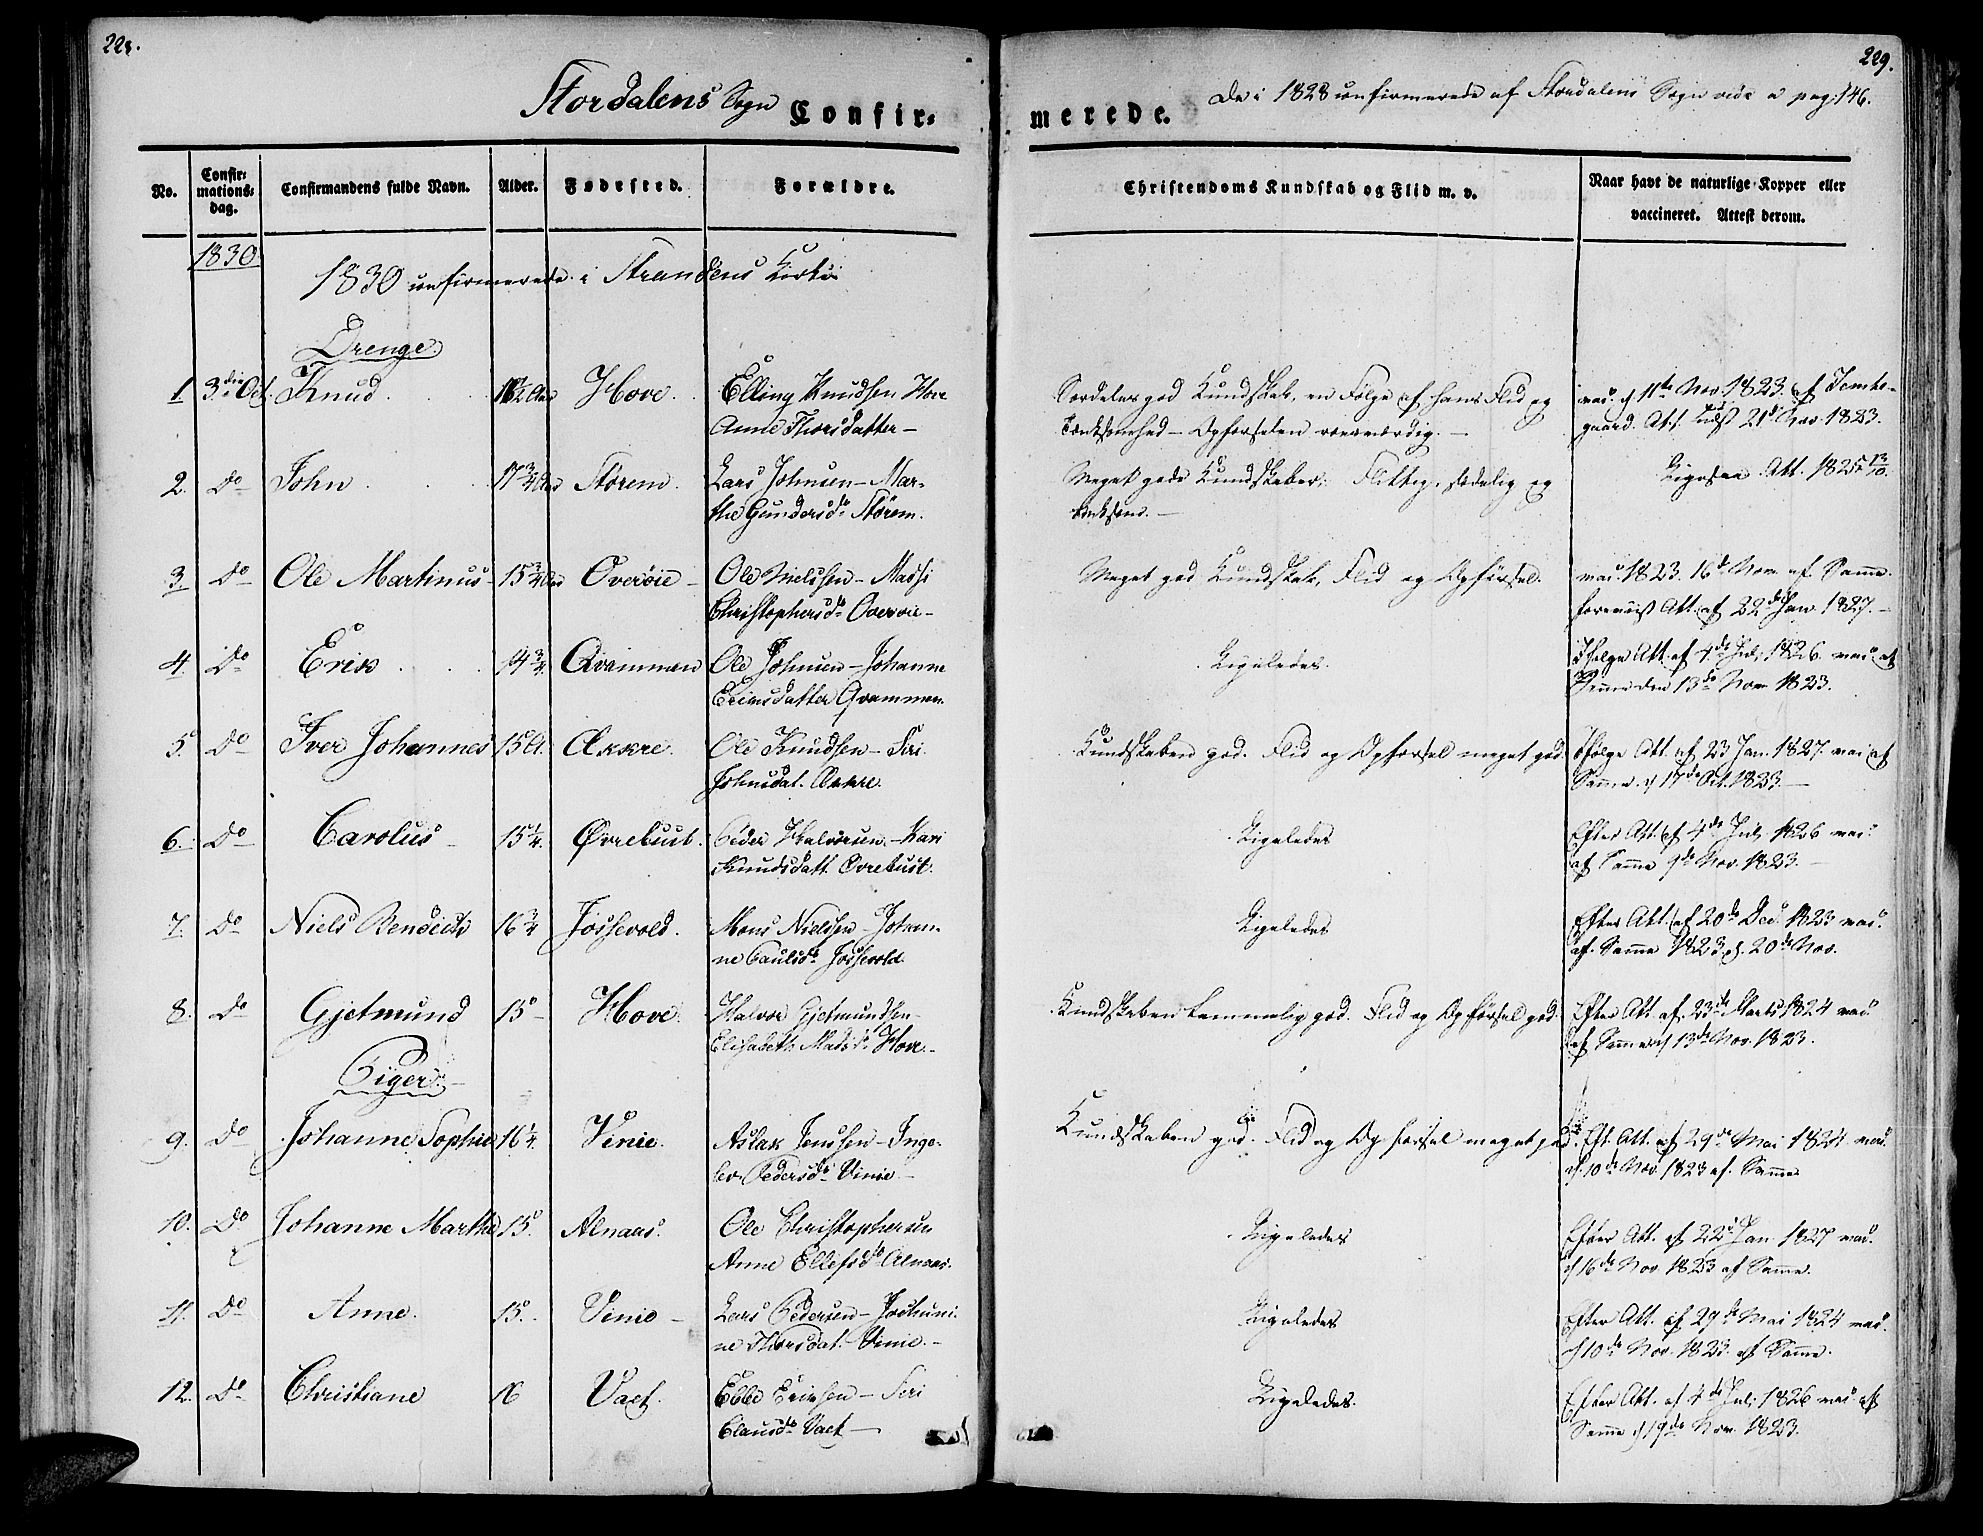 228.
229.
Stordalens Sogn Confir-
merede. De i 1828 confirmerede af Stordalens Sogn vide a pag: 146.
No. Confir-mations-dag. Confirmandens fulde Navn. Alder. Fødested. Forældre.
Christendoms Kundskab og Flid m. v. Naar havt de naturlige Kopper eller vaccineret. Attest derom.
1830.
1830 confirmerede i Strandens Kirke
Drenge.
1. 3die Oct. Knud Hove. Elling Knudsen Hove
Anne Thorsdatter —
Serdeles god Kundskab, en Følge af hans Flid og
Tænksomhed — Opførselen roesværdig. —
vac. d 11te Nov. 1823. af
gaard. Att. udst 21de Nov 1823.
2. Do John 17 3/4 Aar Størem. Lars Johnsen — Mar-
the Gundersdr Størem.
Meget gode Kundskaber. Flittig, sædelig og
tænksom. —
Ligesaa Att. 1825
3. Do Ole Martinus 15 3/4 Aar Overøie — Ole Nielssen — Madsi
Christophersdr Overøie —
Meget god Kundskab, Flid og Opførsel.
vac. 1823. 16de Nov. af Samme.
forevist Att. af 22de Jan. 1827. —
4. Do Erik 14 3/4. Qvammen Ole Johnsen — Johanne
Ericsdatter Qvammen.
Ligeledes.
Ifølge Att. af 4de Juli 1826. vac. af
Samme den 13de Nov. 1823.
5. Do Iver Johannes 15 A. Ækkre. Ole Knudsen — Siri
Johnsdat. Ækkre.
Kundskaben god. Flid og Opførsel meget god
Ifølge Att. af 23 Jan. 1827. vac. af
Samme. d 17de Oct. 1823. —
6. Do Carolus 15 1/4. Øvrebust. Peder Halvorsen — Kari
Knudsdatt. Øvrebust.
Ligeledes
Efter Att. af 4de Juli 1826 vac.
af Samme 9de Nov. 1823. —
7. Do Niels Bendicts 16 3/4 Jøssevold. Mons Nielssen — Johan-
ne Paulsdr Jøssevold.
Ligeledes
Efter Att. af 20de Dec. 1823 vac.
af Samme 1823. d. 20de Nov.
8. Do Gjetmund 15 — Hove. Halvor Gjetmundsen —
Elisabeth Madsdr Hove. —
Kundskaben temmelig god. Flid og Opførsel god.
Efter Att. af 23de Marts 1824 vac.
af Samme d 13de Nov. 1823.
Piger. —
9. Do Johanne Sophie 16 1/4. Vinie. Aslak Jenssen — Inge-
lev Pedersdr Vinie —
Kundskaben god. Flid og Opførsel meget god.
Eft. Att. af 29de Mai 1824 vac.
d. 10de Nov. 1823 af. Samme
10. Do Johanne Marthe 15. Alnaas. Ole Christophersen
Anne Ellefsdr Alnaas.
Ligeledes
Efter Att. af 22de Jan. 1827 vac.
d 16de Nov. 1823 af Samme.
11. Do Anne. 15. Vinie — Lars Pedersen — Jochumi-
ne Thorsdat. Vinie. —
Ligeledes
Efter Att. af 29de Mai 1824 vac.
d 10de Nov. 1823. af Samme.
12. Do Christiane 16 Vact. Ebbe Ericsen — Siri
Clausdr Vact —
Ligeledes.
Efter Att. af 4de Juli 1826 vac. af
Samme d 19de Nov. 1823.